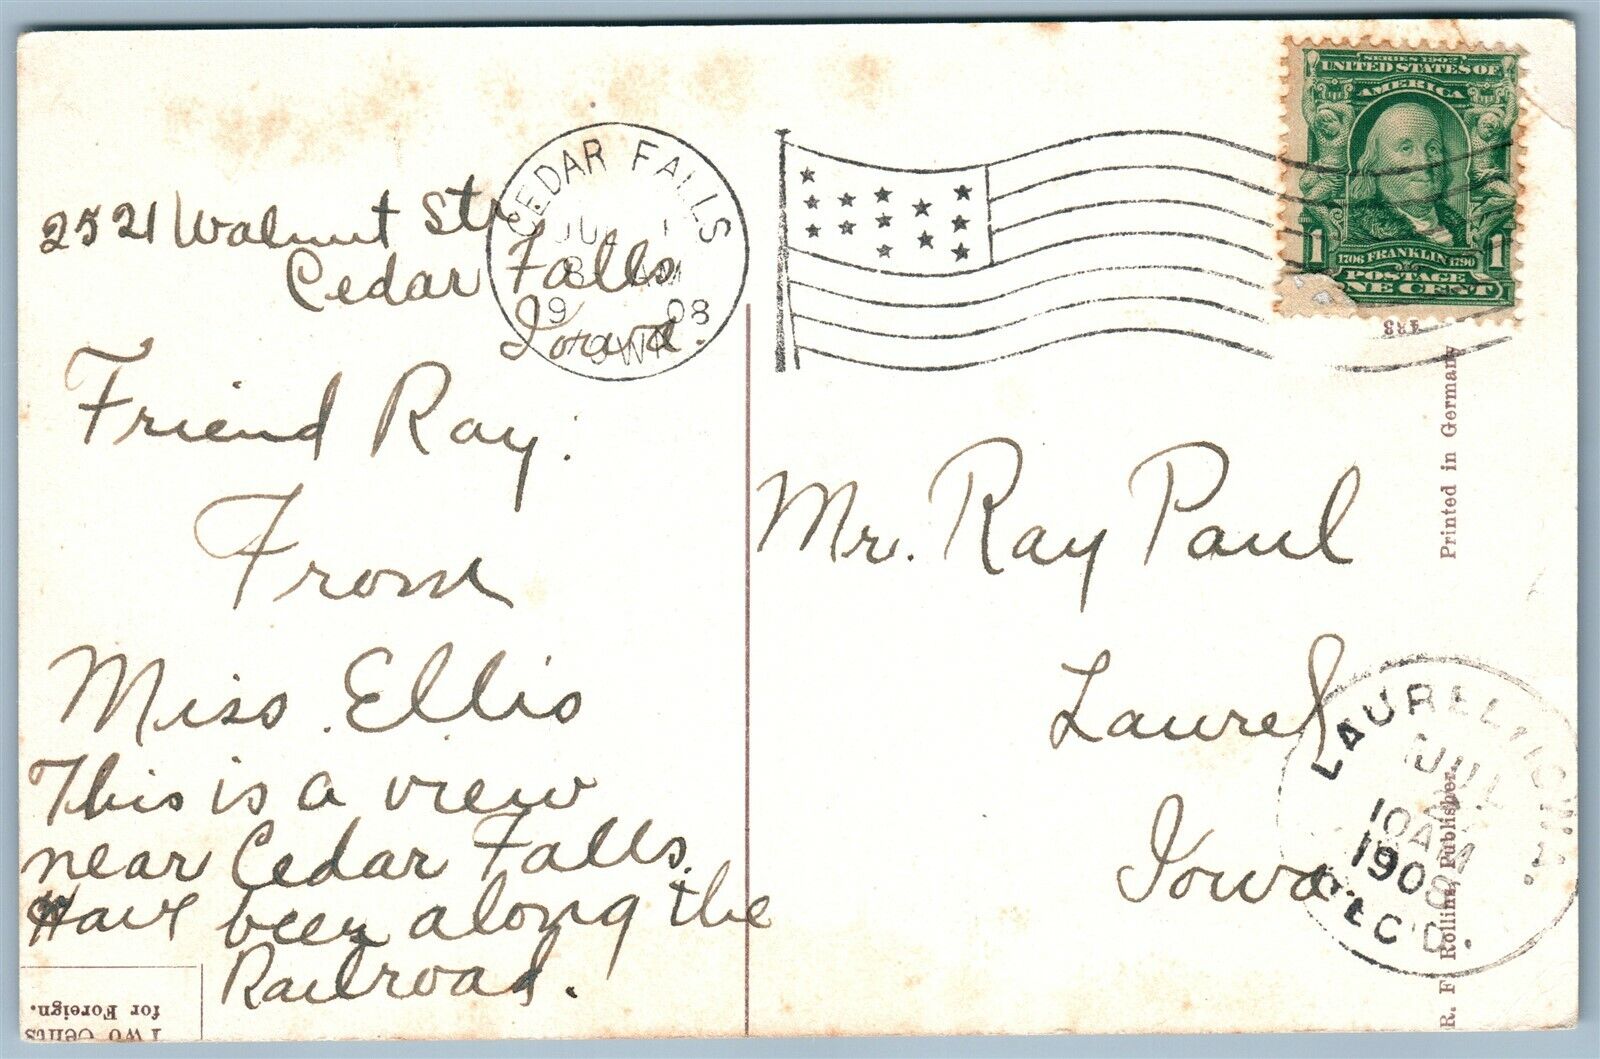 2521 Walnut Str
Cedar Falls
Iowa.
Friend Ray:
From
Miss. Ellis
This is a view
near Cedar Falls.
Have been along the
Railroad.
CEDAR FALLS
8 AM
19 08
IOWA
SERIES 1902
UNITED STATES OF
AMERICA
1 1706 FRANKLIN 1790 1
POSTAGE
ONE CENT
Mr. Ray Paul
Laurel
Iowa
LAUREL, IOWA.
JUL
10 AM
1908
REC'D.
Printed in Germany
R. F. Rollins, Publisher.
Two Cents
for Foreign.